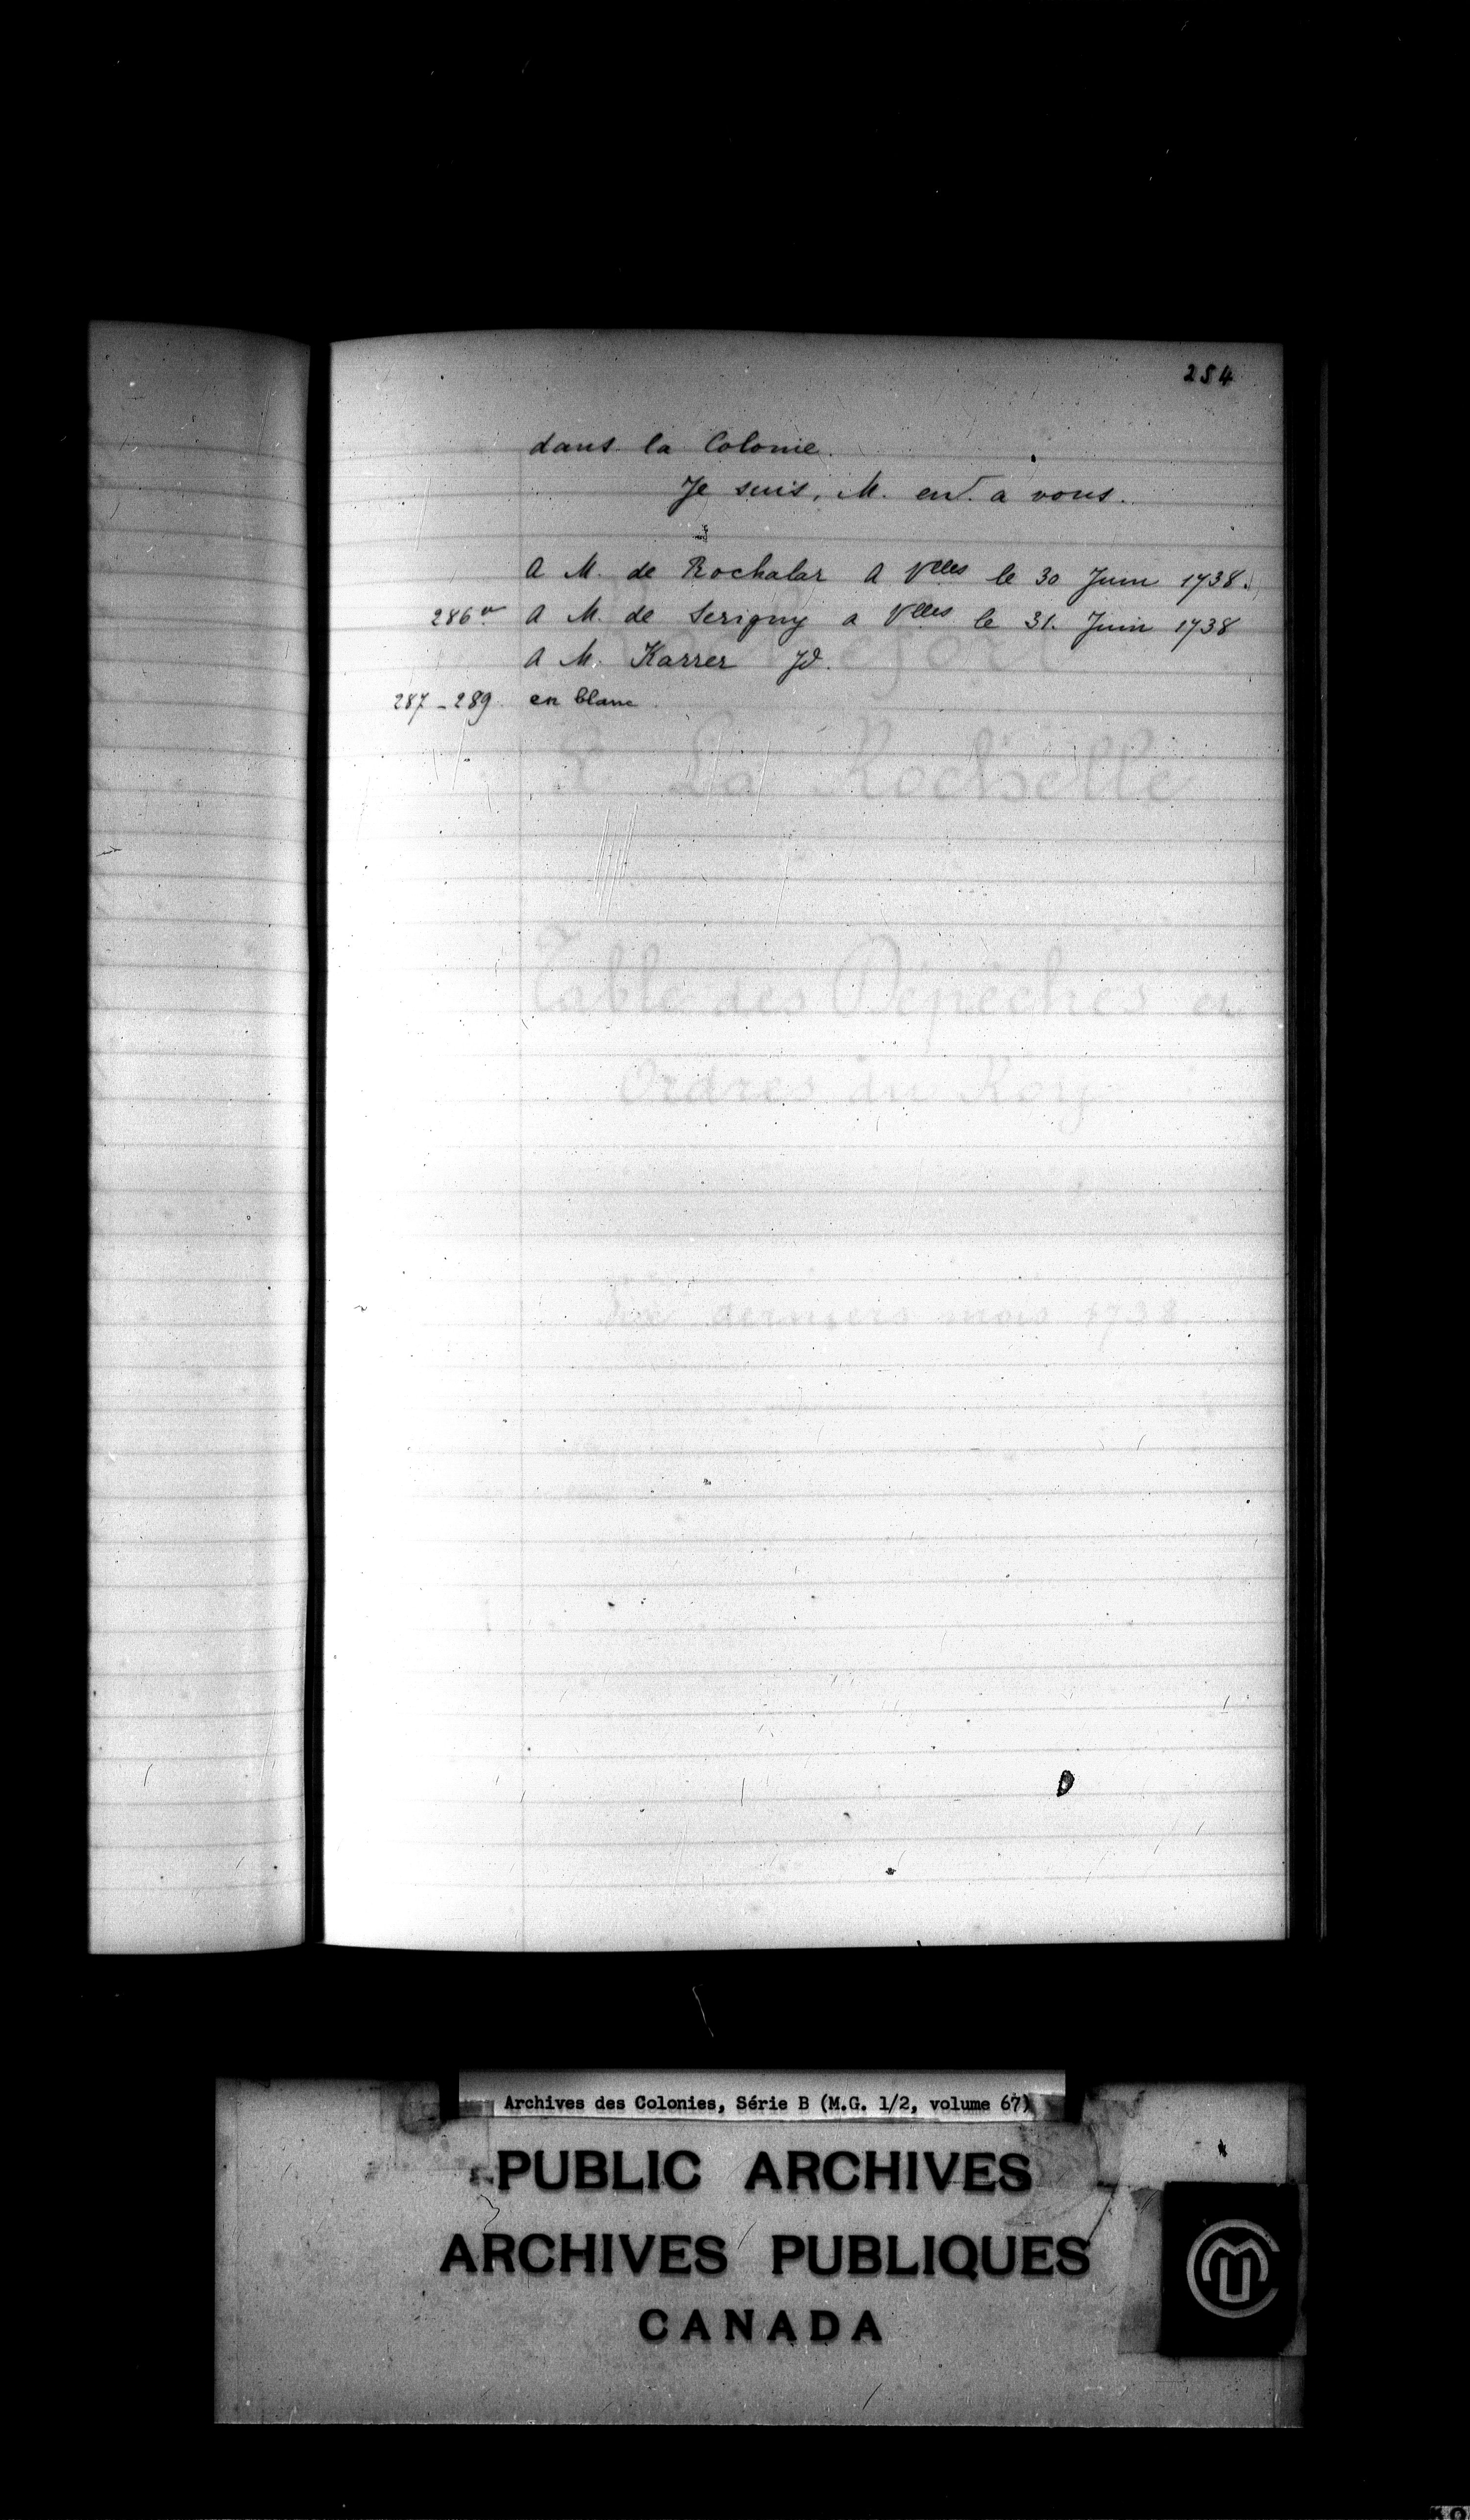 254
dans la Colonie.
Je suis, M. ent. a vous.
A M. de Rochalar A Vlles le 30 Juin 1738.
286 vo A M. de Serigny a Vlles le 31. Juin 1738
A M. Karrer Jd.
287 - 289. en blanc.
& La Rochelle
Table des Dépêches et
Ordres du Roy
Six derniers mois 1738
Archives des Colonies, Série B (M.G. 1/2, volume 67)
PUBLIC ARCHIVES
ARCHIVES PUBLIQUES
CANADA